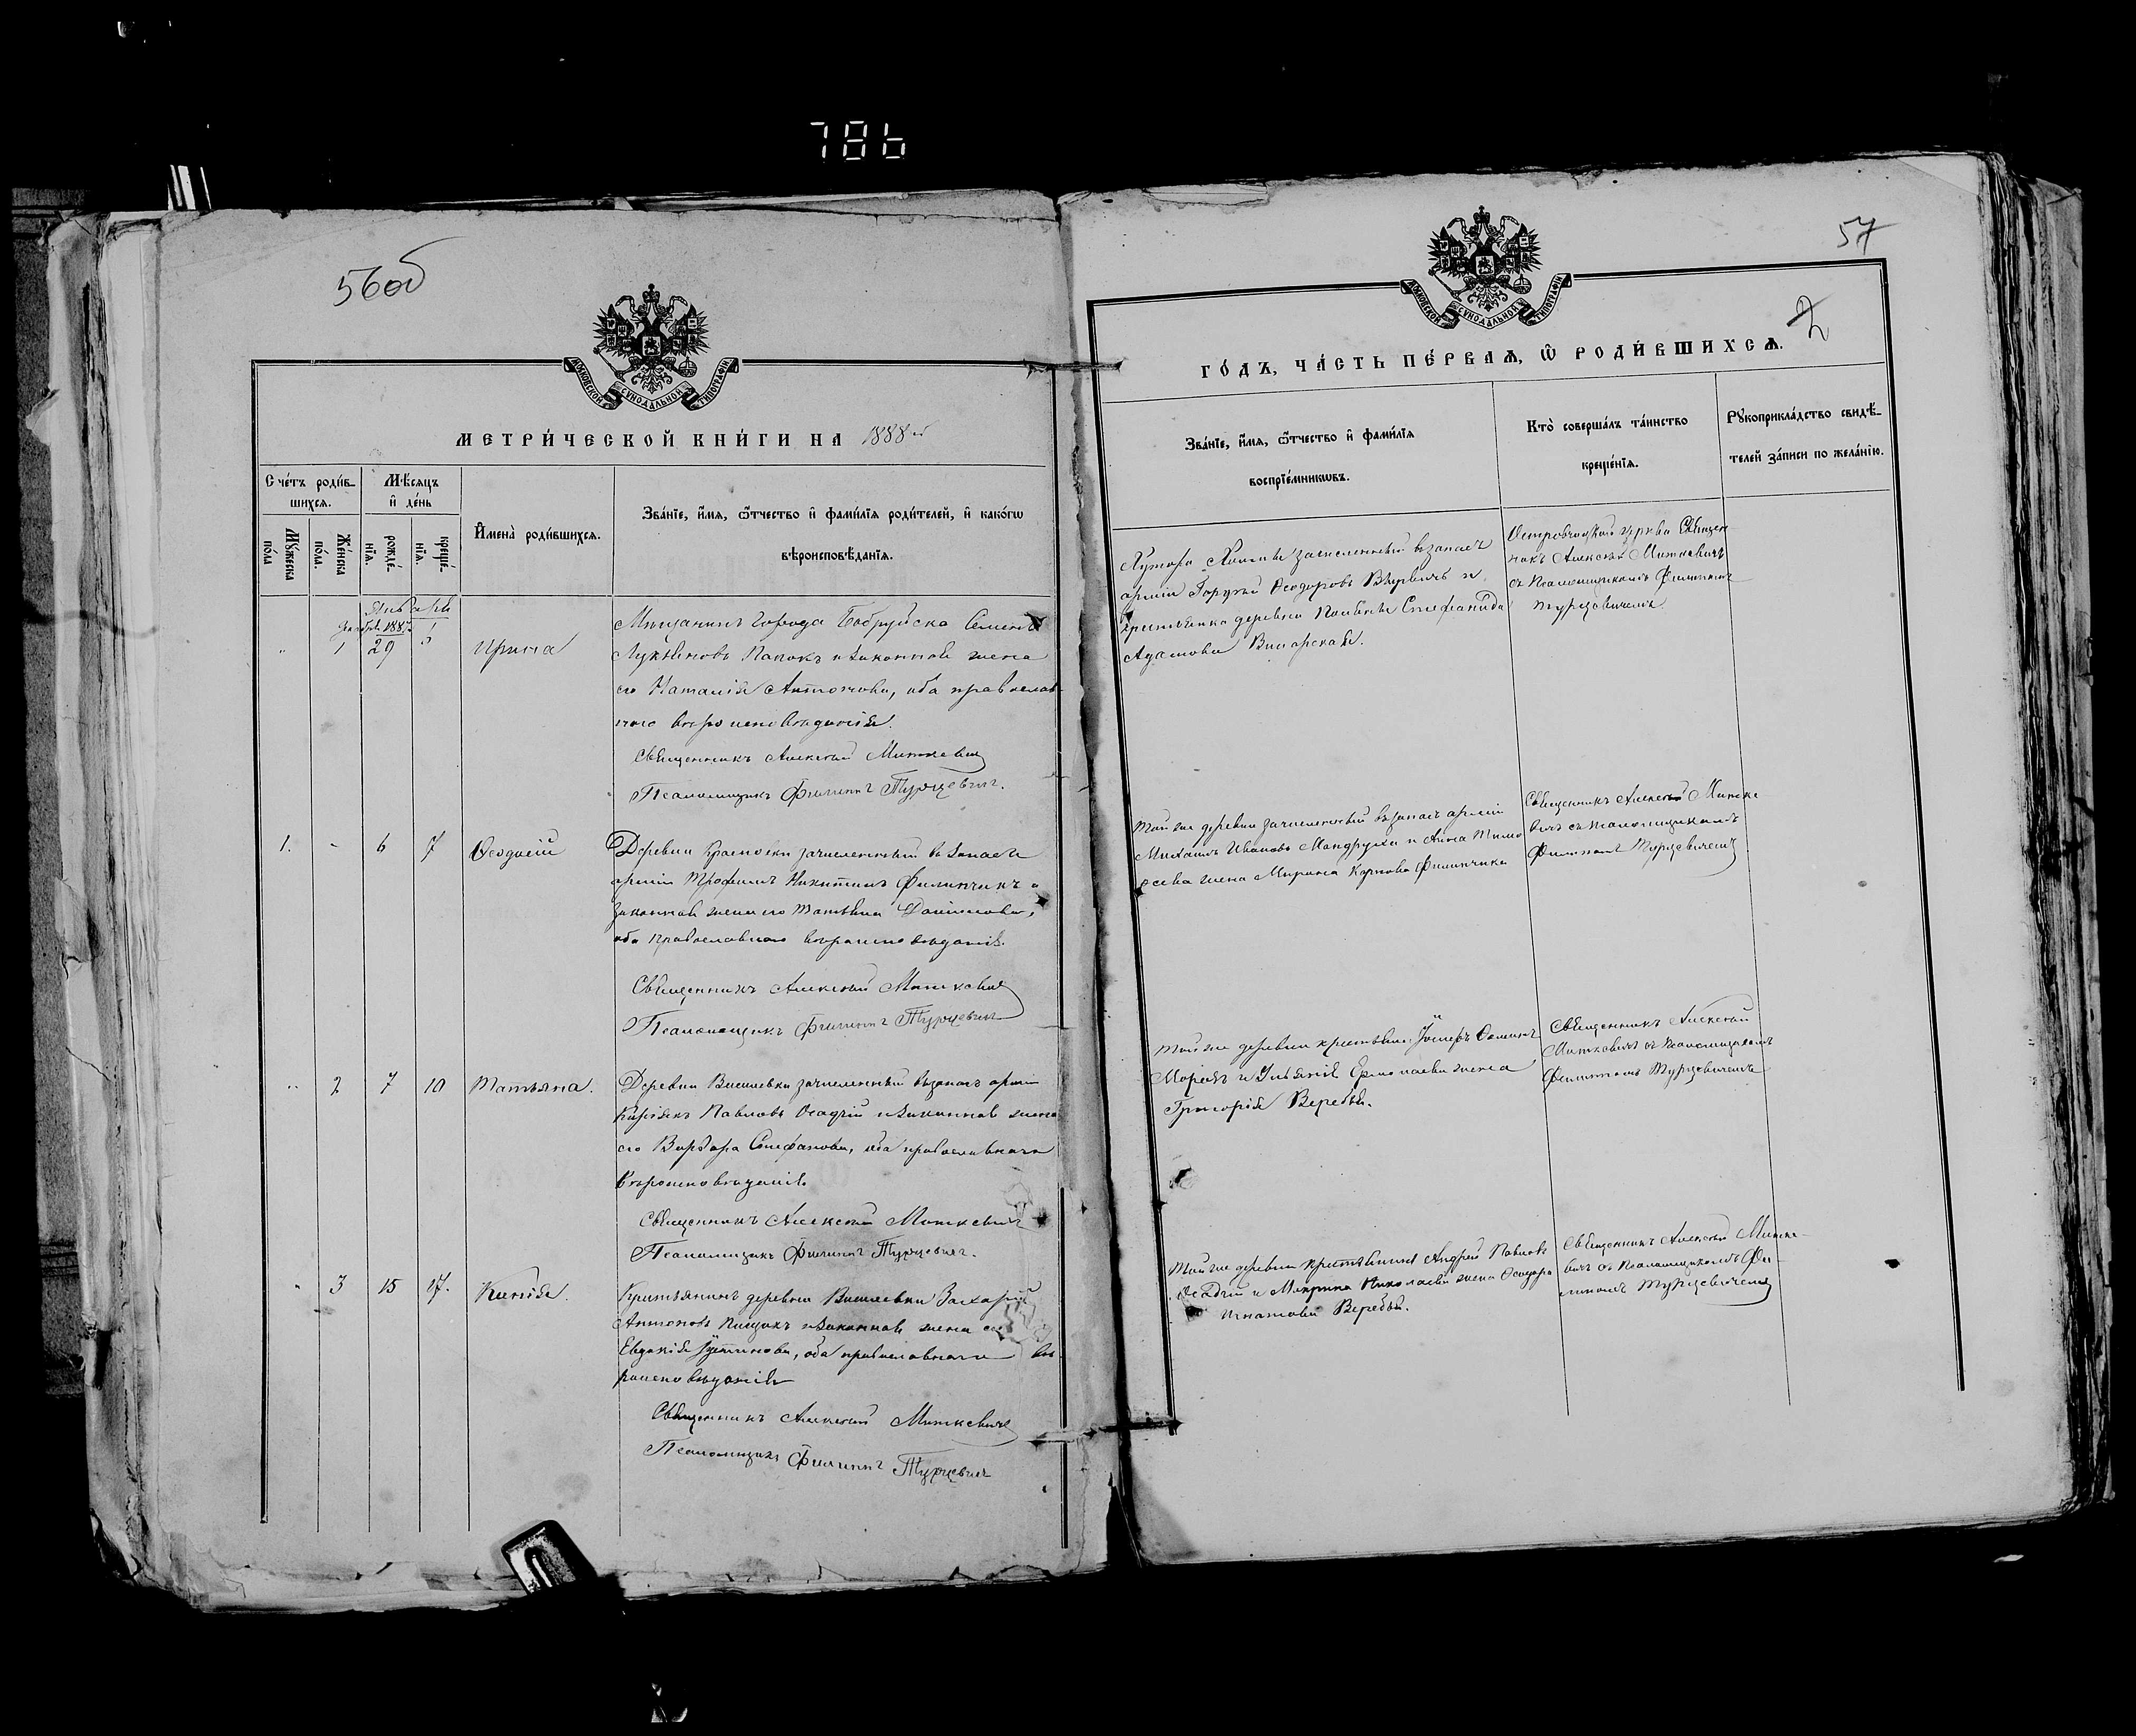 786
56об
МОСКОВСКОЙ СѴНОДАЛЬНОЙ ТИПОГРАФІИ
МЕТРИ́ЧЕСКОЙ КНИ́ГИ НА 1888й
Сче́тъ роди́в-
шихся.
Мѣ́сяцъ
и҆ де́нь
Мꙋ́жеска
по́ла
Же́нска
по́ла.
рожде́-
нїѧ.
креще́-
нїѧ.
И҆мена̀ роди́вшихсѧ.
Зва́нїе, и҆́мѧ, ѻ҆́тчество и҆ фами́лїѧ роди́телей, и҆ како́гѡ
вѣроисповѣ́данїѧ.
Январь
Декабрь 1887 1
" 1 29 Ирина
Мѣщанинъ города Бобруйска Семенъ
Лукьяновъ Папокъ и законная жена
его Наталія Антонова, оба православ-
наго вѣроисповѣданія.
Священникъ Алексѣй Миткевич
Псаломщикъ Филиппъ Турцевич.
1. - 6 7 Ѳеодосій
Деревни зачисленный въ запасъ
арміи Трофимъ Никитинъ Филипчикъ и
законная жена его Татьяна Даніилова,
оба православнаго вѣроисповѣданія.
Священникъ Алексѣй Миткевич
Псаломщикъ Филиппъ Турцевич
" 2 7 10 Татьяна.
Деревни Вишневки зачисленный въ запасъ арміи
Киріякъ Павловъ Осадчій и законная жена
его Варвара Стефанова, оба православнаго
вѣроисповѣданія
Священникъ Алексѣй Миткевич
Псаломщикъ Филиппъ Турцевич.
" 3 15 17. Ксенія.
Крестьянинъ деревни Вишневки Захарій
Антоновъ и законная жена его
Евдокія Іустинова, оба православнаго вѣ-
роисповѣданія
Священникъ Алексѣй Миткевич
Псаломщикъ Филиппъ Турцевич
57
2
МОСКОВСКОЙ СѴНОДАЛЬНОЙ ТИПОГРАФІИ
ГО́ДЪ, ЧА́СТЬ ПЕ́РВАѦ, Ѽ РОДИ́ВШИХСѦ.
Зва́нїе, и҆́мѧ, ѻ҆́тчество и҆ фами́лїѧ
воспрїе́мникѡвъ.
Кто̀ соверша́лъ та́инство
креще́нїѧ.
Рꙋкоприкла́дство свидѣ́-
телей за́писи по жела́нїю.
Хутора зачисленный въ запасъ
арміи Ѳеодоровъ и
крестьянка деревни Стефанида
Адамова
церкви Священ-
никъ Алексѣй Миткевичъ
съ Псаломщикомъ Филиппомъ
Турцевичемъ
Той же деревни зачисленный въ запасъ арміи
Михаилъ Ивановъ Мандрука и Анна Тимо
ѳеева жена Мирона Карпова Филипчика
Священникъ Алексѣй Митке
вичъ съ псаломщикомъ
Филиппомъ Турцевичемъ
Той же деревни крестьяне: Іосифъ
и Ермолаева жена
Григорія Веребья.
Священникъ Алексѣй
Миткевичъ съ Псаломщикомъ
Филиппомъ Турцевичемъ
Той же деревни крестьянинъ Андрей Павловъ
Осадчій и Макрина Николаева жена Ѳеодора
Игнатова Веребья.
Священникъ Алексѣй Митке-
вичъ съ Псаломщикомъ Фи-
липпомъ Турцевичемъ